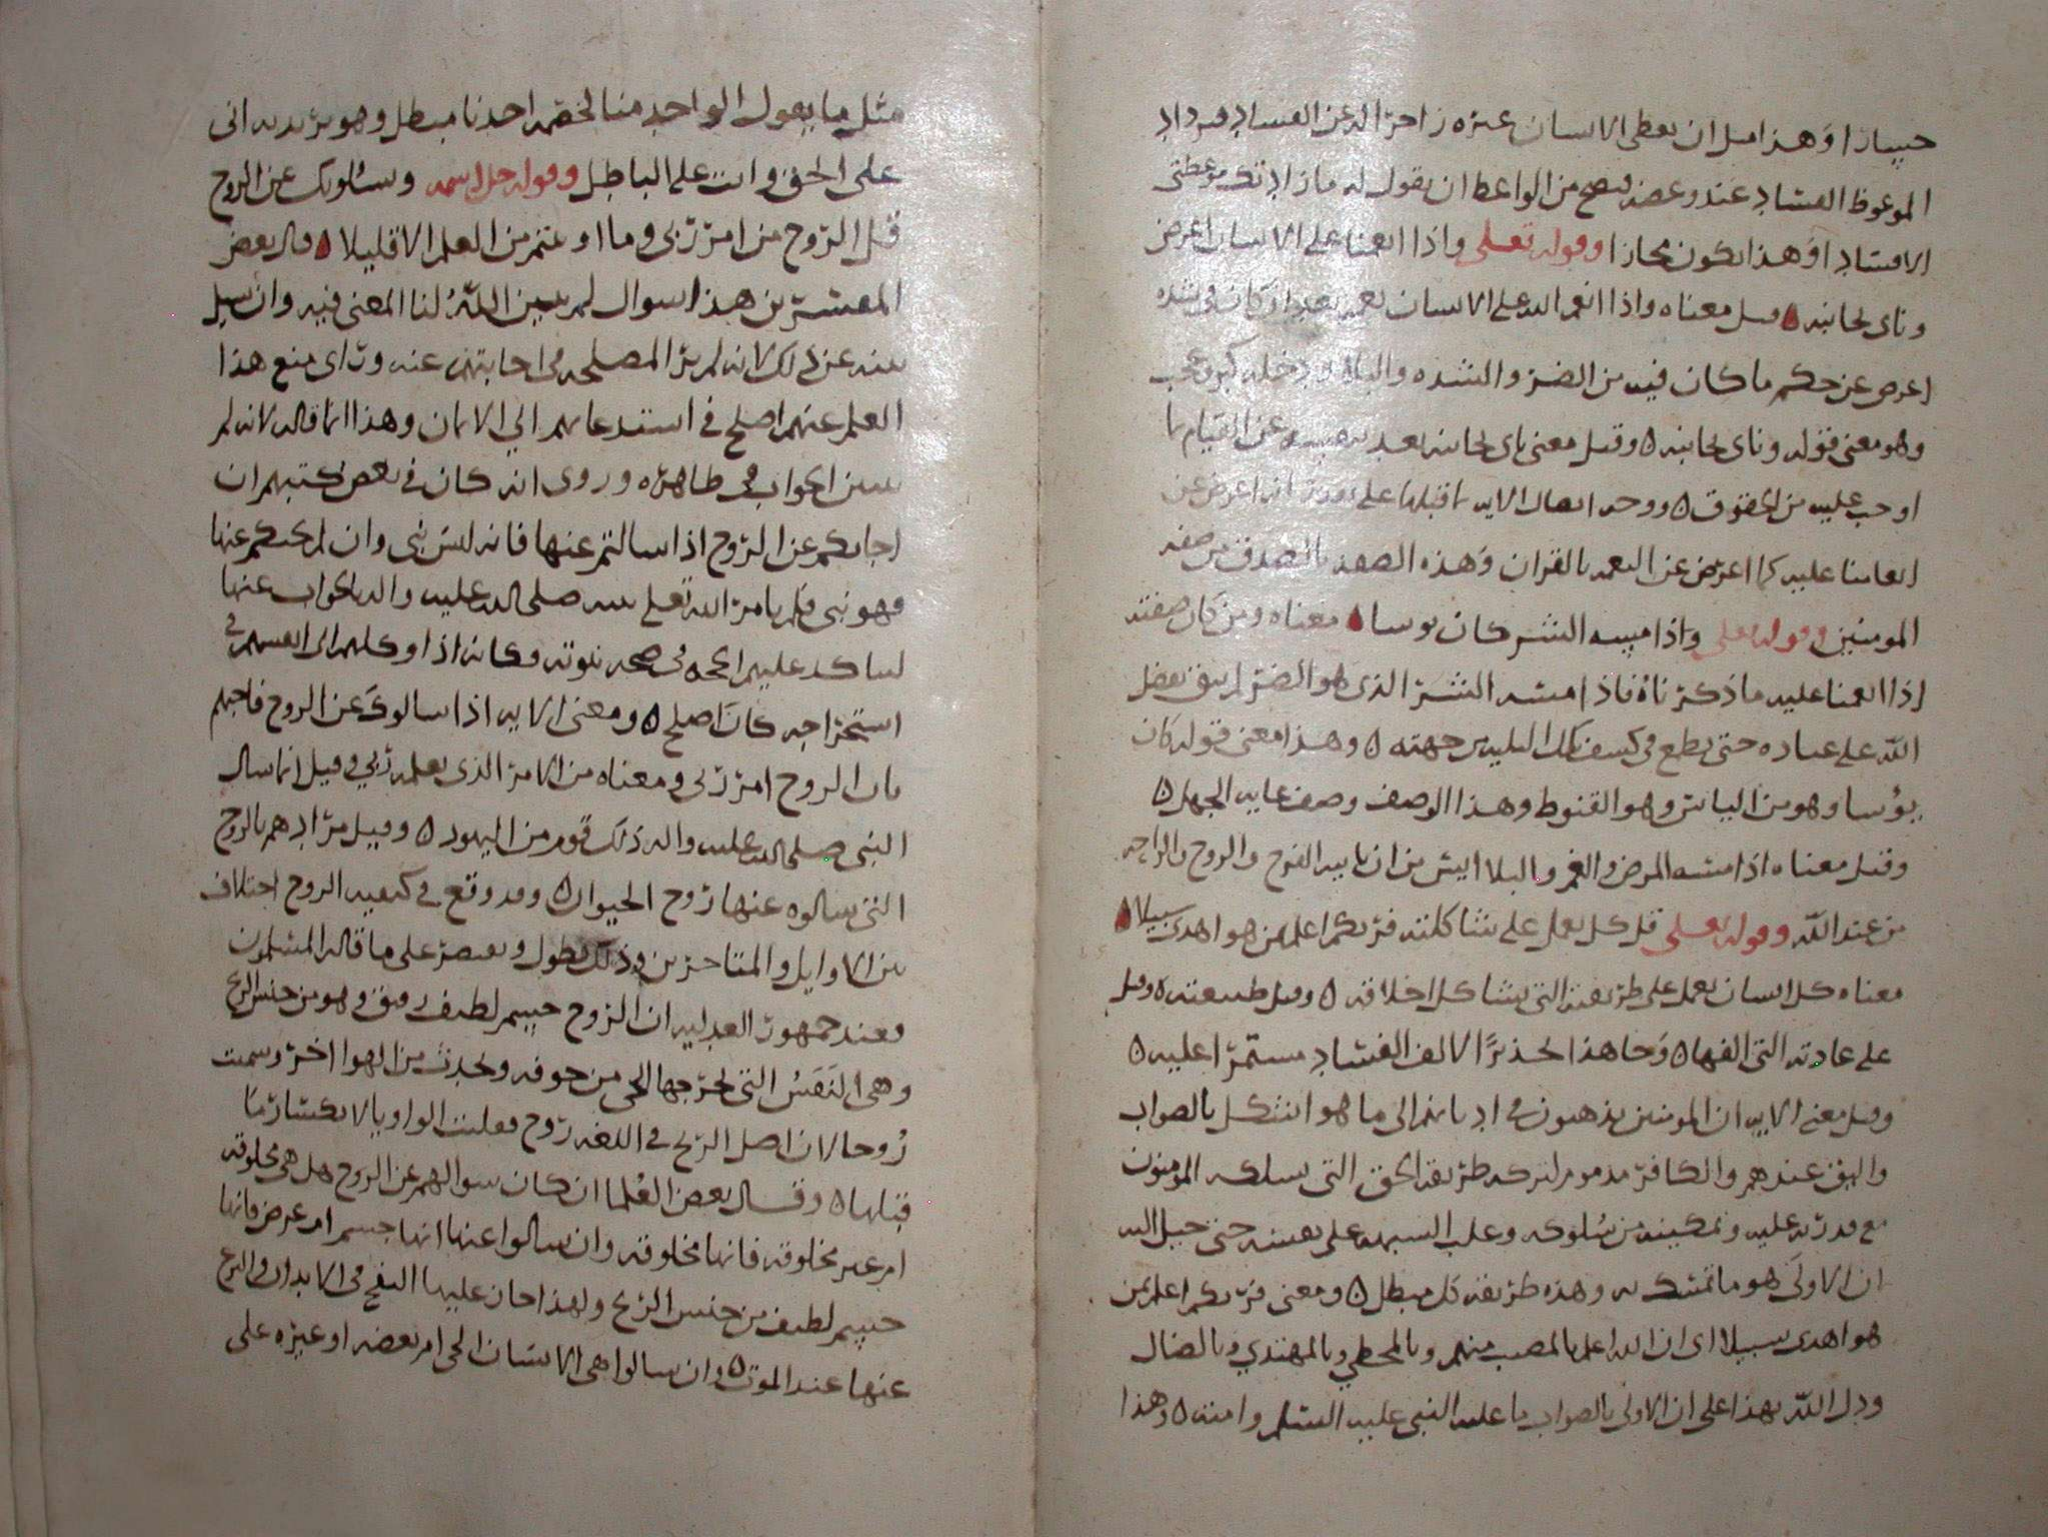 خسارا وهذا مثل ان يعظ الانسان غيره زاجرا له عن الفساد فيزداد
الموعوظ الفساد عند وعضه فيصح من الواعظ ان يقول له ما زادتك موعظتى
الا فسادا وهذا يكون مجازا وقوله تعلى واذا انعمنا على الانسان اعرض
وناى بجانبه قيل معناه واذا انعم الله على الانسان نعمه بعد ان كان فى شده
اعرض عن حكم ما كان فيه من الضر والشده والبلا ودخله كبر وعجب
وهو معنى قوله وناى بجانبه ه وقيل معنى ناى بجانبه بعد بنفسه عن القيام بما
اوجب عليه من الحقوق ه ووجه اتصال الايه بما قبلها على انه اعرض عن
انعامنا عليه كما اعرض عن النعمه بالقران وهذه الصفه بالضد من صفه
المومنين وقوله تعلى واذا مسه الشر كان يوسا معناه ومن كان صفته
اذا انعمنا عليه ما ذكرناه فاذا مسه الشر الذى هو الضر لم يثق بفضل
الله على عباده حتى يطمع فى كشف تلك البليه من جهته ه وهذا معنى قوله كان
يؤسا وهو من الياس وهو القنوط وهذا الوصف وصف غايه الجهل ه
وقيل معناه اذا مسه المرض والغم والبلا ايس من ان ياتيه الفرج والروح والراحه
من عند الله وقوله تعلى قل كل يعمل على شاكلته فربكم اعلم بمن هو اهدى سبيلا
معناه كل انسان يعمل على طريقته التى يشاكل اخلاقه ه وقيل طبيعته ه وقيل
على عادته التى الفها ه وجا هذا تحذيرا لالف الفساد مستمرا عليه ه
وقيل معنى الايه ان المومنين يذهبون فى اديانهم الى ما هو اشكل بالصواب
واليق عندهم والكافر مذموم لتركه طريقه الحق التى يسلكه المومنون
مع قدرته عليه وتمكينه من سلوكه وغلب الشبهه على نفسه حتى خيل اليه
ان الاولى هو ما تمسك به وهذه طريقه كل مبطل ه ومعنى فربكم اعلم بمن
هو اهدى سبيلا اى ان الله اعلم بالمصيب منهم وبالمخطي وبالمهتدي وبالضال
ودل الله بهذا على ان الاولى بالصواب ما عليه النبى عليه السلم وامته ه وهذا
مثل ما يقول الواحد منا لخصمه احدنا مبطل وهو يريد به انى
على الحق وانت على الباطل وقوله جل اسمه ويسئلونك عن الروح
قل الروح من امر ربى وما اوتيتم من العلم الا قليلا قال بعض
المفسرين هذا سوال لم يبين الله لنا المعنى فيه وان سيل
نبيه عن ذلك لانه لم ير المصلحه فى اجابتهم عنه وراى منع هذا
العلم عنهم اصلح فى استدعايهم الي الايمان وهذا انما قاله لانه لم
يتبين الجواب فى ظاهره وروى انه كان فى بعض كتبهم ان
اجابكم عن الروح اذا سالتم عنها فانه ليس بنبى وان لم يجبكم عنها
فهو نبى فلم يامر الله تعلى نبيه صلى الله عليه واله بالجواب عنها
ليتاكد عليهم الحجه فى صحه نبوته وكانه اذا وكلهم الى انفسهم فى
استخراجه كان اصلح ه ومعنى الايه اذا سالوك عن الروح فاجبهم
بان الروح امر ربى ومعناه من الامر الذى يعلمه ربي وقيل انما سال
النبى صلى الله عليه واله ذلك قوم من اليهود ه وقيل مرادهم بالروح
التى سالوه عنها روح الحيوان ه وقد وقع فى كيفيه الروح اختلاف
بين الاوايل والمتاخرين وذلك يطول ونقتصر على ما قاله المسلمون
فعند جمهور العدليه ان الروح جسم لطيف رقيق وهو من جنس الريح
وهى النفس التى يخرجها الحى من جوفه ويجذب من الهوا اخر وسميت
روحا لان اصل الريح فى اللغه روح فقلبت الواو يا لانكسار ما
قبلها ه وقال بعض العلما ان كان سوالهم عن الروح هل هى مخلوقه
ام غير مخلوقه فانها مخلوقه وان سالوا عنها انها جسم ام عرض فانها
جسم لطيف من جنس الريح ولهذا جاز عليها النفخ فى الابدان والخروج
عنها عند الموت ه وان سالوا هى الانسان الحى ام بعضه او غيره على